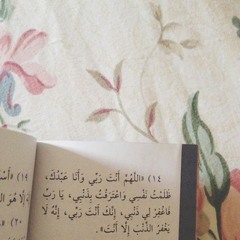 ١٤) «اللَّهُمَّ أَنْتَ رَبِّي وَأَنَا عَبْدُكَ،
ظَلَمْتُ نَفْسِي وَاعْتَرَفْتُ بِذَنْبِي، يَا رَبِّ
فَاغْفِرْ لِي ذَنْبِي، إِنَّكَ أَنْتَ رَبِّي، إِنَّهُ لَا
يَغْفِرُ الذَّنْبَ إِلَّا أَنْتَ».
١٩) «أَسْ
إِلَّا هُوَ الْ
٢٠) «